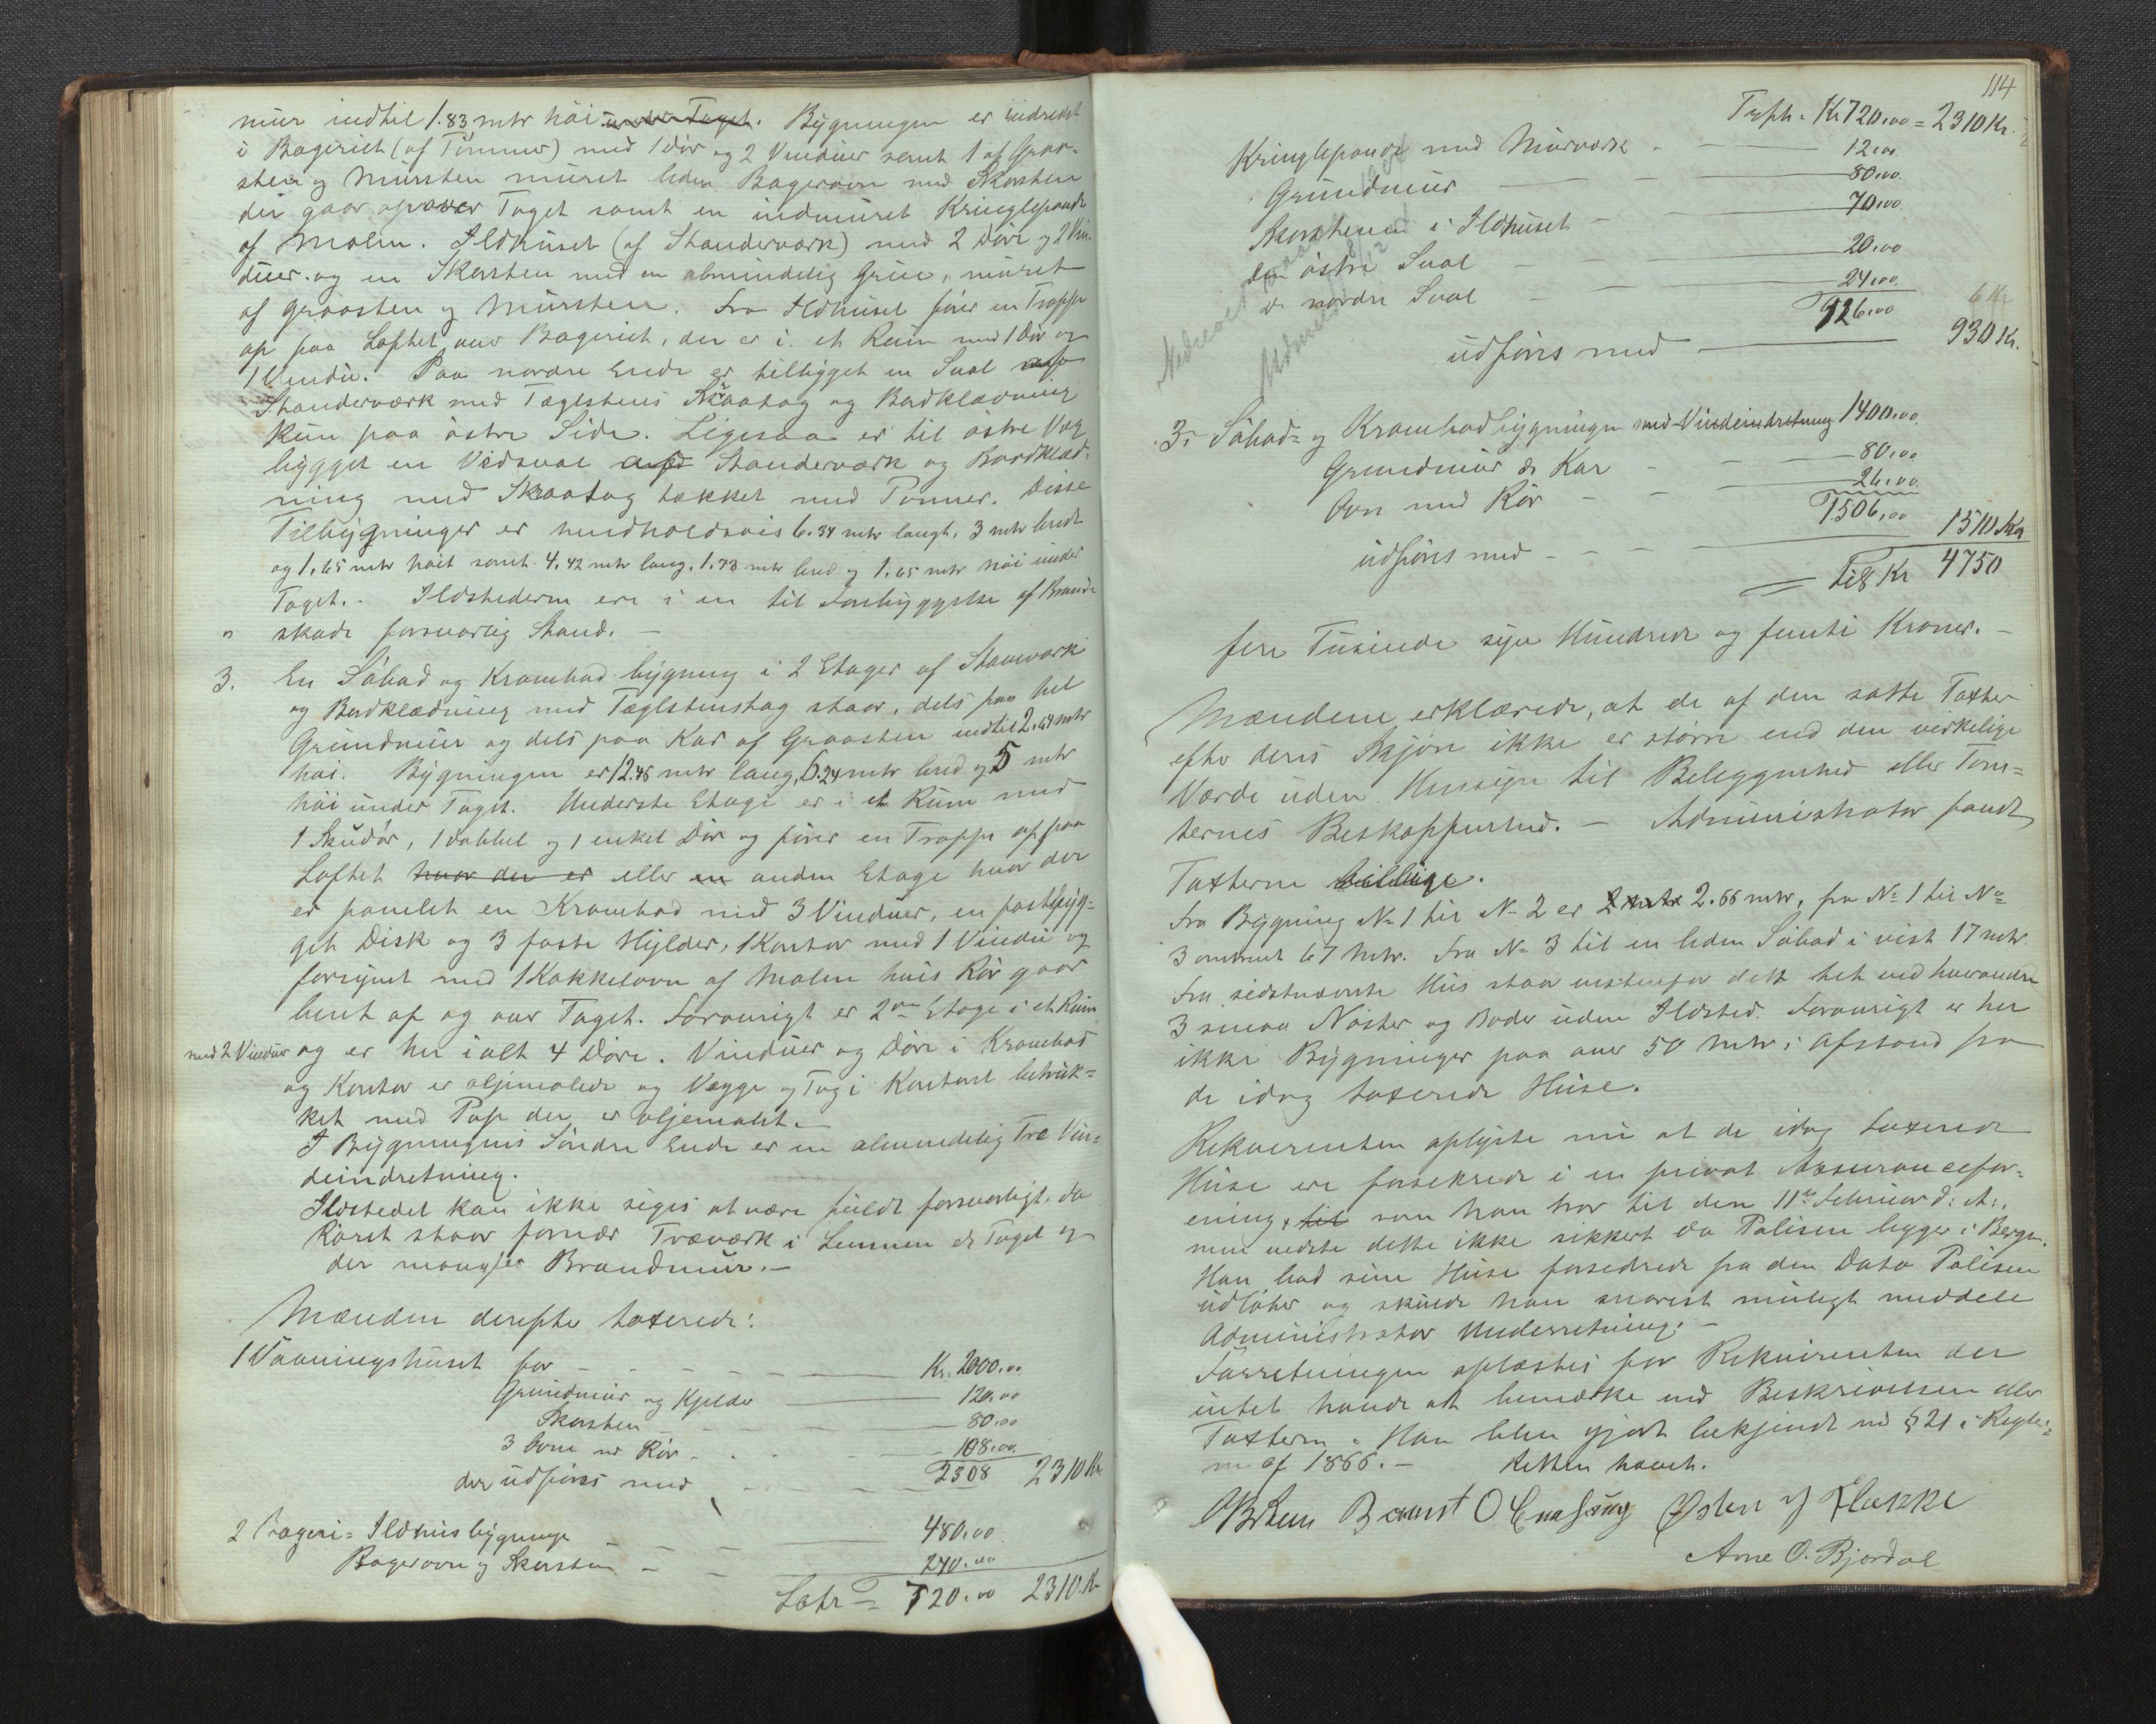 mur indtil 1.83 mtr höi under Taget. Bygningen er indredet
i Bageriet (af Tömmer) med 1 Dör og 2 Vinduer samt 1 af Graa-
sten og Mursten muret liden Bagerovn med Skorsten
der gaar op over Taget samt en indmuret Kringlepande
af Malm. Ildhuset (af Standerværk) med 2 Döre og 2 Vin-
duer og en Skorsten med en almindelig Grue, muret
af Graasten og Mursten. Fra Ildhuset förer en Trappe
op paa Loftet over Bageriet, der er i et Rum med 1 Dör og
1 Vindu. Paa nordre Ende er tilbygget en Sval af
Standerværk med Tæglstens Skraatag og Bordklædning
kun paa östre Side. Ligesaa er til östre Væg
bygget en Vedsval af Standerværk og Bordklæd-
ning med Skraatag tækket med Panner. Disse
Tilbygninger er henholdsvis 6.34 mtr langt, 3 mtr bredt
og 1.65 mtr höit samt 4.42 mtr lang, 1.73 mtr bred og 1.65 mtr höi under
Taget. - Ildstederne ere i en til Forebyggelse af Brand-
" skade forsvarlig Stand. -
3. En Söbod og Krambod bygning i 2 Etager af Stavværk
og Bordklædning med Tæglstenstag staar, dels paa hel
Grundmur og dels paa Kar af Graasten indtil 2.69 mtr
höi. Bygningen er 12.48 mtr lang, 6.24 mtr bred og 5 mtr
höi under Taget. Underste Etage er i et Rum med
1 Skudör, 1 dobbel og 1 enkel Dör og förer en Trappe op paa
Loftet hvor der er eller en anden Etage hvor der
er panelet en Krambod med 3 Vinduer, en fastbyg-
get Disk og 3 faste Hylder, 1 Kontor med 1 Vindu og
forsynet med 1 Kakkelovn af Malm hvis Rör gaar
bent op og over Taget. Forövrigt er 2den Etage i et Rum
med 2 Vinduer og er her i alt 4 Döre. Vinduer og Döre i Krambod
og Kontor er oljemalede og Vægge og Tag i Kontoret betræk-
ket med Pap der er oljemalet. -
I Bygningens Söndre Ende er en almindelig Træ Vin-
deindretning.
Ildstedet kan ikke siges at være fuldt forsvarligt, da
Röret staar fornær Træværk i Lemmen & Taget og
der mangler Brandmur. -
Mændene derefter taxerede:
1 Vaaningshuset for - - - Kr. 2000.00
Grundmur og Kjelder 120.00
Skorsten 80.00
3 Ovne m Rör 108.00
der udföres med 2308 2310 Kr.
2 Bageri- Ildhusbygninge 480.00
Bagerovn og Skorsten 240.00
Latr = 720.00 2310. Kr
114
Trsph. Kr 720.00 = 2310 Kr.
Kringlepande med Murværk 12.00
Grundmur 80.00
Skorstenen i Ildhuset 70.00
den östre Sval 20.00
do nordre Sval 24.00
926.00 6 Kr
udföres med 930 Kr.
3. Söbod- og Krambodbygningen med Vindeindretning 1400.00
Grundmur & Kar 80.00
Ovn med Rör 26.00
1506.00
udföres med 1510 Kr
til Kr 4750
fire Tusinde syv Hundrede og femti Kroner. -
Mændene erklærede, at de af dem satte Taxter
efter deres Skjön ikke er större end den virkelige
Værdi uden Hensyn til Beliggenhed eller Tom-
ternes Beskaffenhed. - Administrator fandt
Taxterne billige.
Fra Bygning No 1 til No 2 er 2 mtr 2.66 mtr, fra No 1 til No
3 omtrent 67 mtr. Fra No 3 til en liden Söbod i vest 17 mtr.
Fra sidstnævnte Hus staar vestenfor dette tæt ved hverandre
3 smaa Nöster og Boder uden Ildsted. Forövrigt er her
ikke Bygninger paa over 50 mtr i Afstand fra
de idag taxerede Huse.
Rekvirenten oplyste nu at de idag taxerede
Huse ere forsikrede i en privat Assurancefor-
ening, til som han tror til den 11te Februar d: A:,
men vedste dette ikke sikkert da Polisen ligger i Bergen.
Han bad sine Huse forsikrede fra den Dato Polisen
udlöber og skulde han snarest muligt meddele
Administrator Underretning. -
Forretningen oplæstes for Rekvirenten der
intet havde at bemærke ved Beskrivelsen eller
Taxterne. Han blev gjort bekjendt med § 21 i Regle-
m af 1866. - Retten hævet.
Arne O. Bjordal